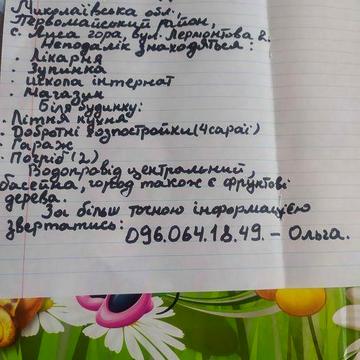 Миколаївська обл.
Первомайський район,
с. Лиса гора, вул. Лермонтова 2.
Неподалік знаходяться:
. Лікарня
. Зупинка
. Школа інтернат
. Магазин
Біля будинку:
. Літня кухня
. Добротні розпостройки (4 сараї)
. Гараж
. Погріб (2)
Водопровід центральний,
басейна, город також є фруктові
дерева.
За більш точною інформацією
звертатись:
096.064.18.49. - Ольга.